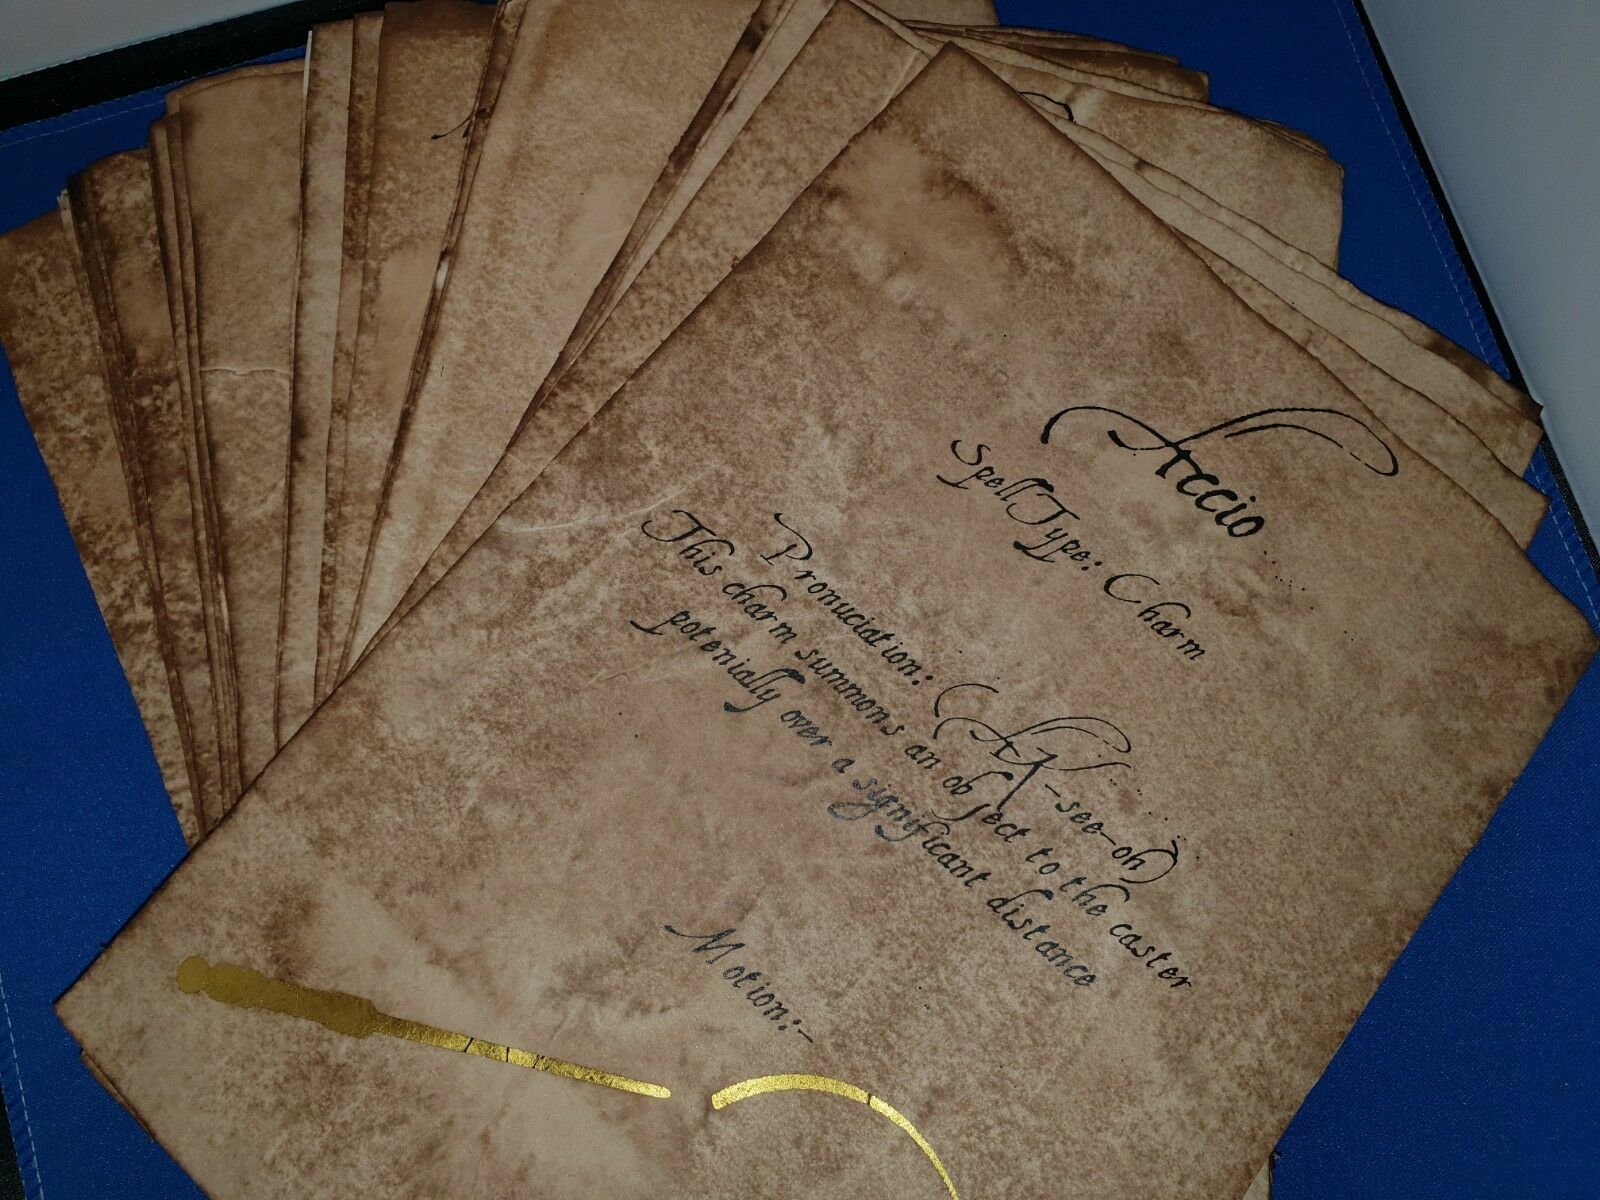 Accio
Spell Type: Charm
Pronuciation: (AK-see-oh)
This charm summons an object to the caster
potenially over a significant distance
Motion:-